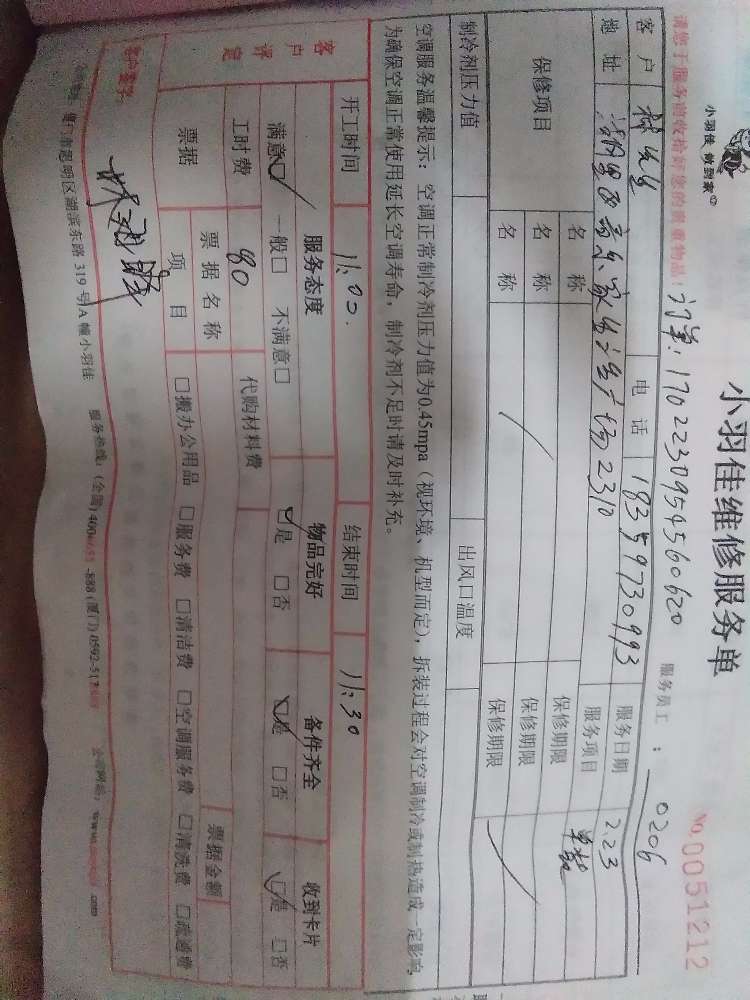 小羽佳 做到家
小羽佳维修服务单
No.0051212
请您于服务前收拾好您的贵重物品！
订单：1702230954560620
服务员工：0206
客户 林先生 电话 18359730993 服务日期 2.23
地址 2310 服务项目
保修项目 名称 保修期限
名称 保修期限
名称 保修期限
制冷剂压力值 出风口温度
空调服务温馨提示：空调正常制冷剂压力值为0.45mpa（视环境、机型而定），拆装过程会对空调制冷或制热造成一定影响，
为确保空调正常使用延长空调寿命，制冷剂不足时请及时补充。
开工时间 11:00. 结束时间 11:30
客户评定 服务态度 物品完好 备件齐全 收到卡片
满意☑ 一般□ 不满意□ ☑是 □否 ☑是 □否 ☑是 □否
工时费 80 代购材料费
票据 票据名称 票据金额
项目 □搬办公用品 □服务费 □清洁费 □空调服务费 □清洗费 □疏通费
客户签字：
厦门市思明区湖滨东路319号A幢小羽佳 服务热线：(全国)400 -888 (厦门)0592-517 公司网站：www. .com